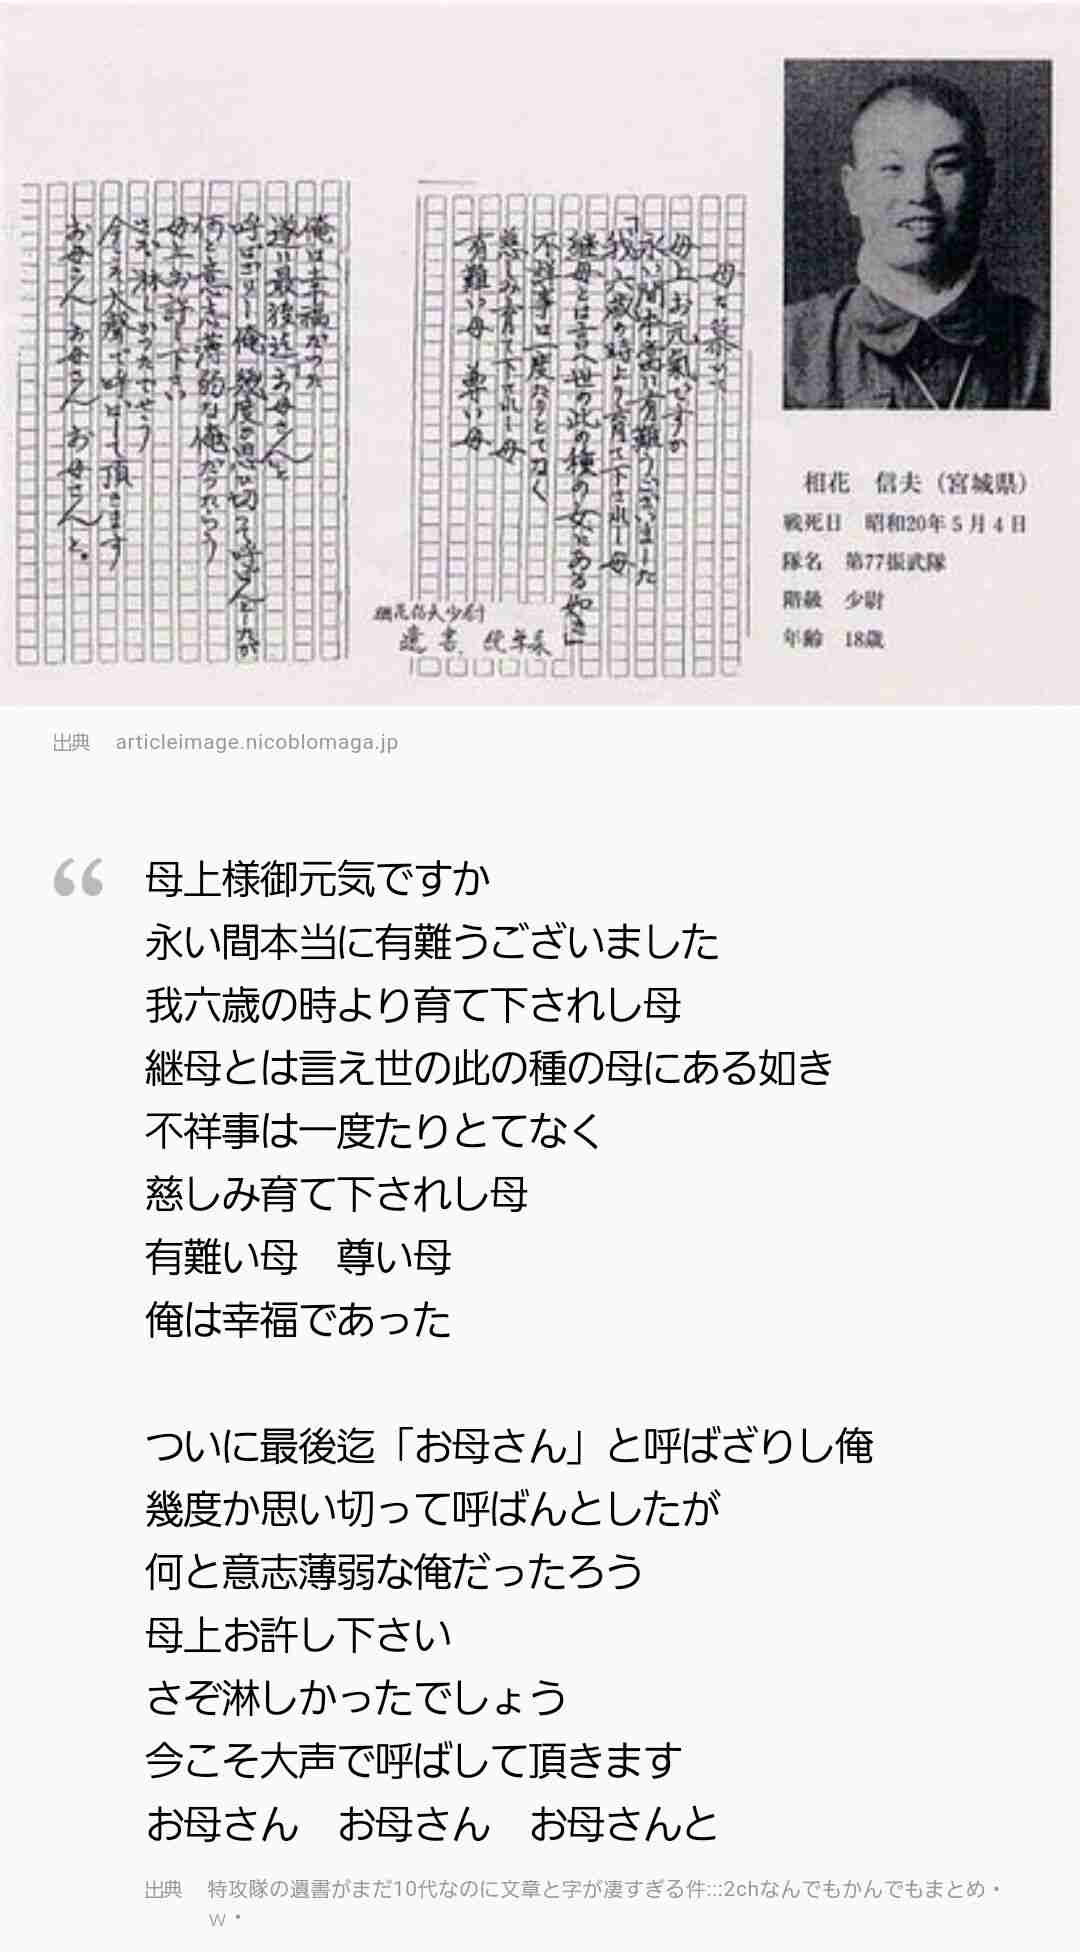 母を慕いて
母上お元氣ですか
永い間本当に有難うございました
「我六歳の時より育て下されし母
継母とは言へ世の此の種の女にある如き」
不祥事は一度たりとてなく
慈しみ育て下されし母
有難い母　尊い母
俺は幸福だった
遂に最後迄「お母さん」と
呼ばざりし俺　幾度か思い切って呼ばんとしたが
何と意志薄弱な俺だったろう
母上お許し下さい
さぞ淋しかったでせう
今こそ大聲で呼ばして頂きます
お母さん　お母さん　お母さんと。
相花信夫少尉
遺書
相花　信夫（宮城県）
戦死日　昭和20年5月4日
隊名　第77振武隊
階級　少尉
年齢　18歳
出典　articleimage.nicoblomaga.jp
母上様御元気ですか
永い間本当に有難うございました
我六歳の時より育て下されし母
継母とは言え世の此の種の母にある如き
不祥事は一度たりとてなく
慈しみ育て下されし母
有難い母　尊い母
俺は幸福であった
ついに最後迄「お母さん」と呼ばざりし俺
幾度か思い切って呼ばんとしたが
何と意志薄弱な俺だったろう
母上お許し下さい
さぞ淋しかったでしょう
今こそ大声で呼ばして頂きます
お母さん　お母さん　お母さんと
出典　特攻隊の遺書がまだ10代なのに文章と字が凄すぎる件:::2chなんでもかんでもまとめ・
ｗ・